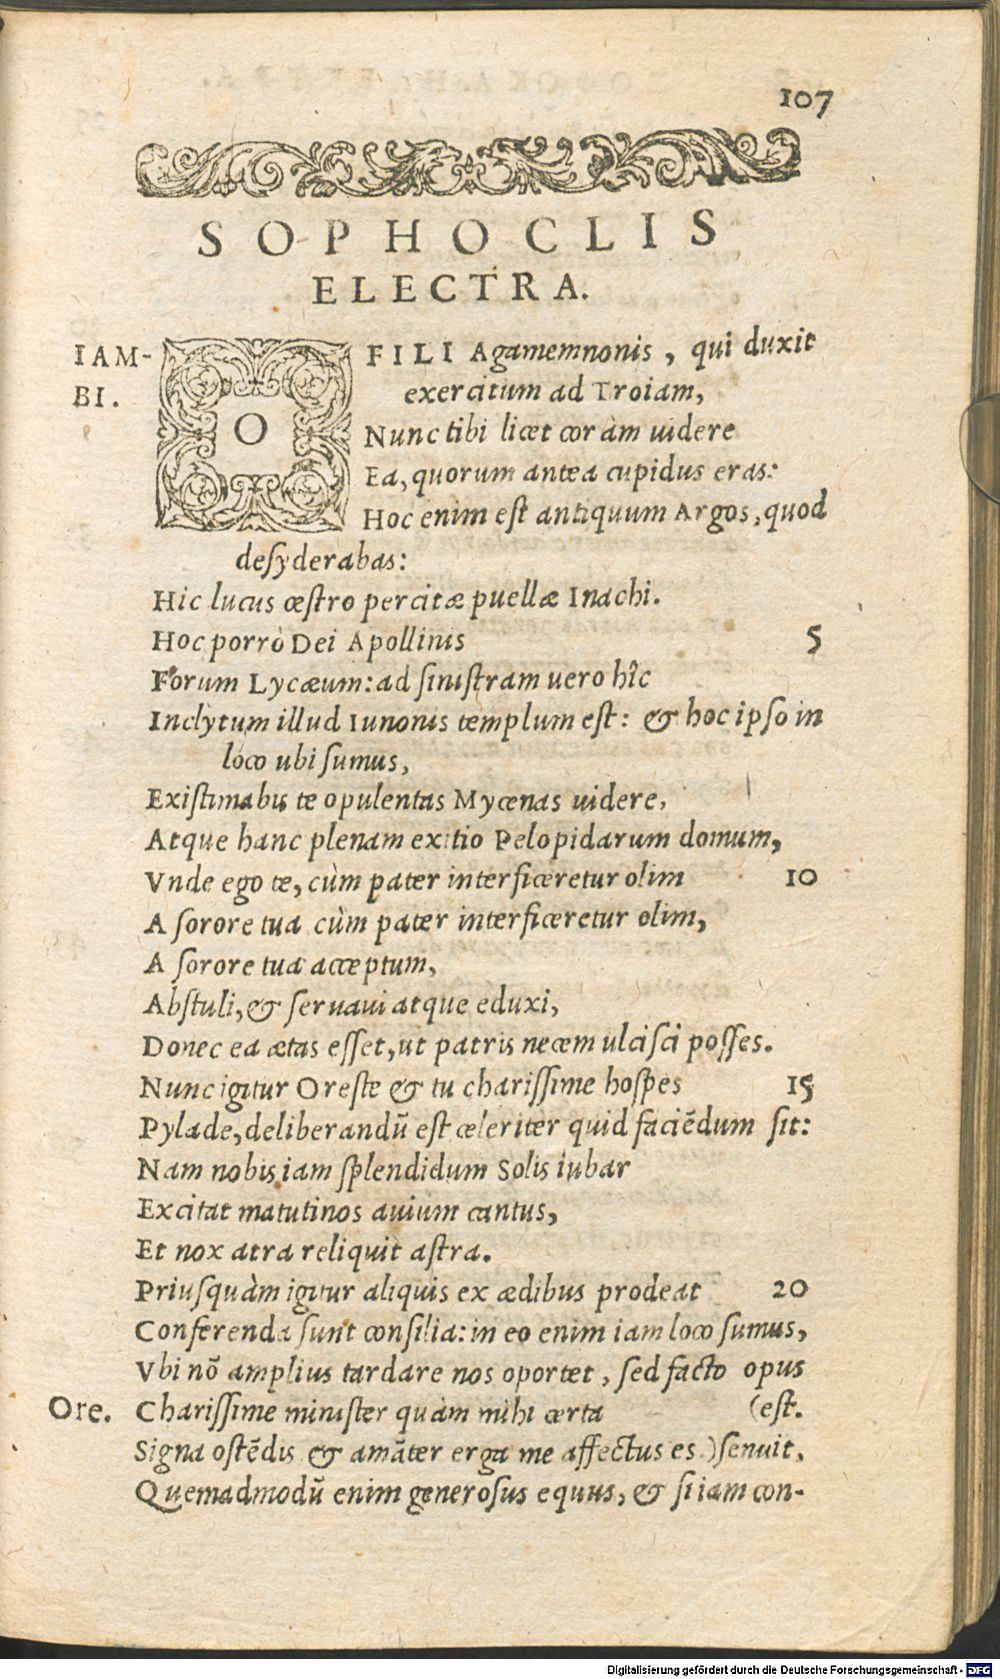 107
SOPHOCLIS
ELECTRA.
IAM-
BI.
O FILI Agamemnonis, qui duxit
exercitum ad Troiam,
Nunc tibi licet coràm uidere
Ea, quorum antea cupidus eras:
Hoc enim est antiquum Argos, quod
desyderabas:
Hic lucus œstro percitæ puellæ Inachi.
Hoc porrò Dei Apollinis 5
Forum Lycæum: ad sinistram uero hîc
Inclytum illud Iunonis templum est: & hoc ipso in
loco ubi sumus,
Existimabis te opulentas Mycenas uidere,
Atque hanc plenam exitio Pelopidarum domum,
Vnde ego te, cùm pater interficeretur olim 10
A sorore tua cùm pater interficeretur olim,
A sorore tua acceptum,
Abstuli, & seruaui atque eduxi,
Donec ea ætas esset, ut patris necem ulcisci posses.
Nunc igitur Oreste & tu charissime hospes 15
Pylade, deliberandũ est celeriter quid faciẽdum sit:
Nam nobis iam splendidum Solis iubar
Excitat matutinos auium cantus,
Et nox atra reliquit astra.
Priusquàm igitur aliquis ex ædibus prodeat 20
Conferenda sunt consilia: in eo enim iam loco sumus,
Vbi nõ amplius tardare nos oportet, sed facto opus
Ore. Charissime minister quàm mihi certa (est.
Signa ostẽdis & amãter erga me affectus es) senuit,
Quemadmodũ enim generosus equus, & si iam con-
Digitalisierung gefördert durch die Deutsche Forschungsgemeinschaft - DFG